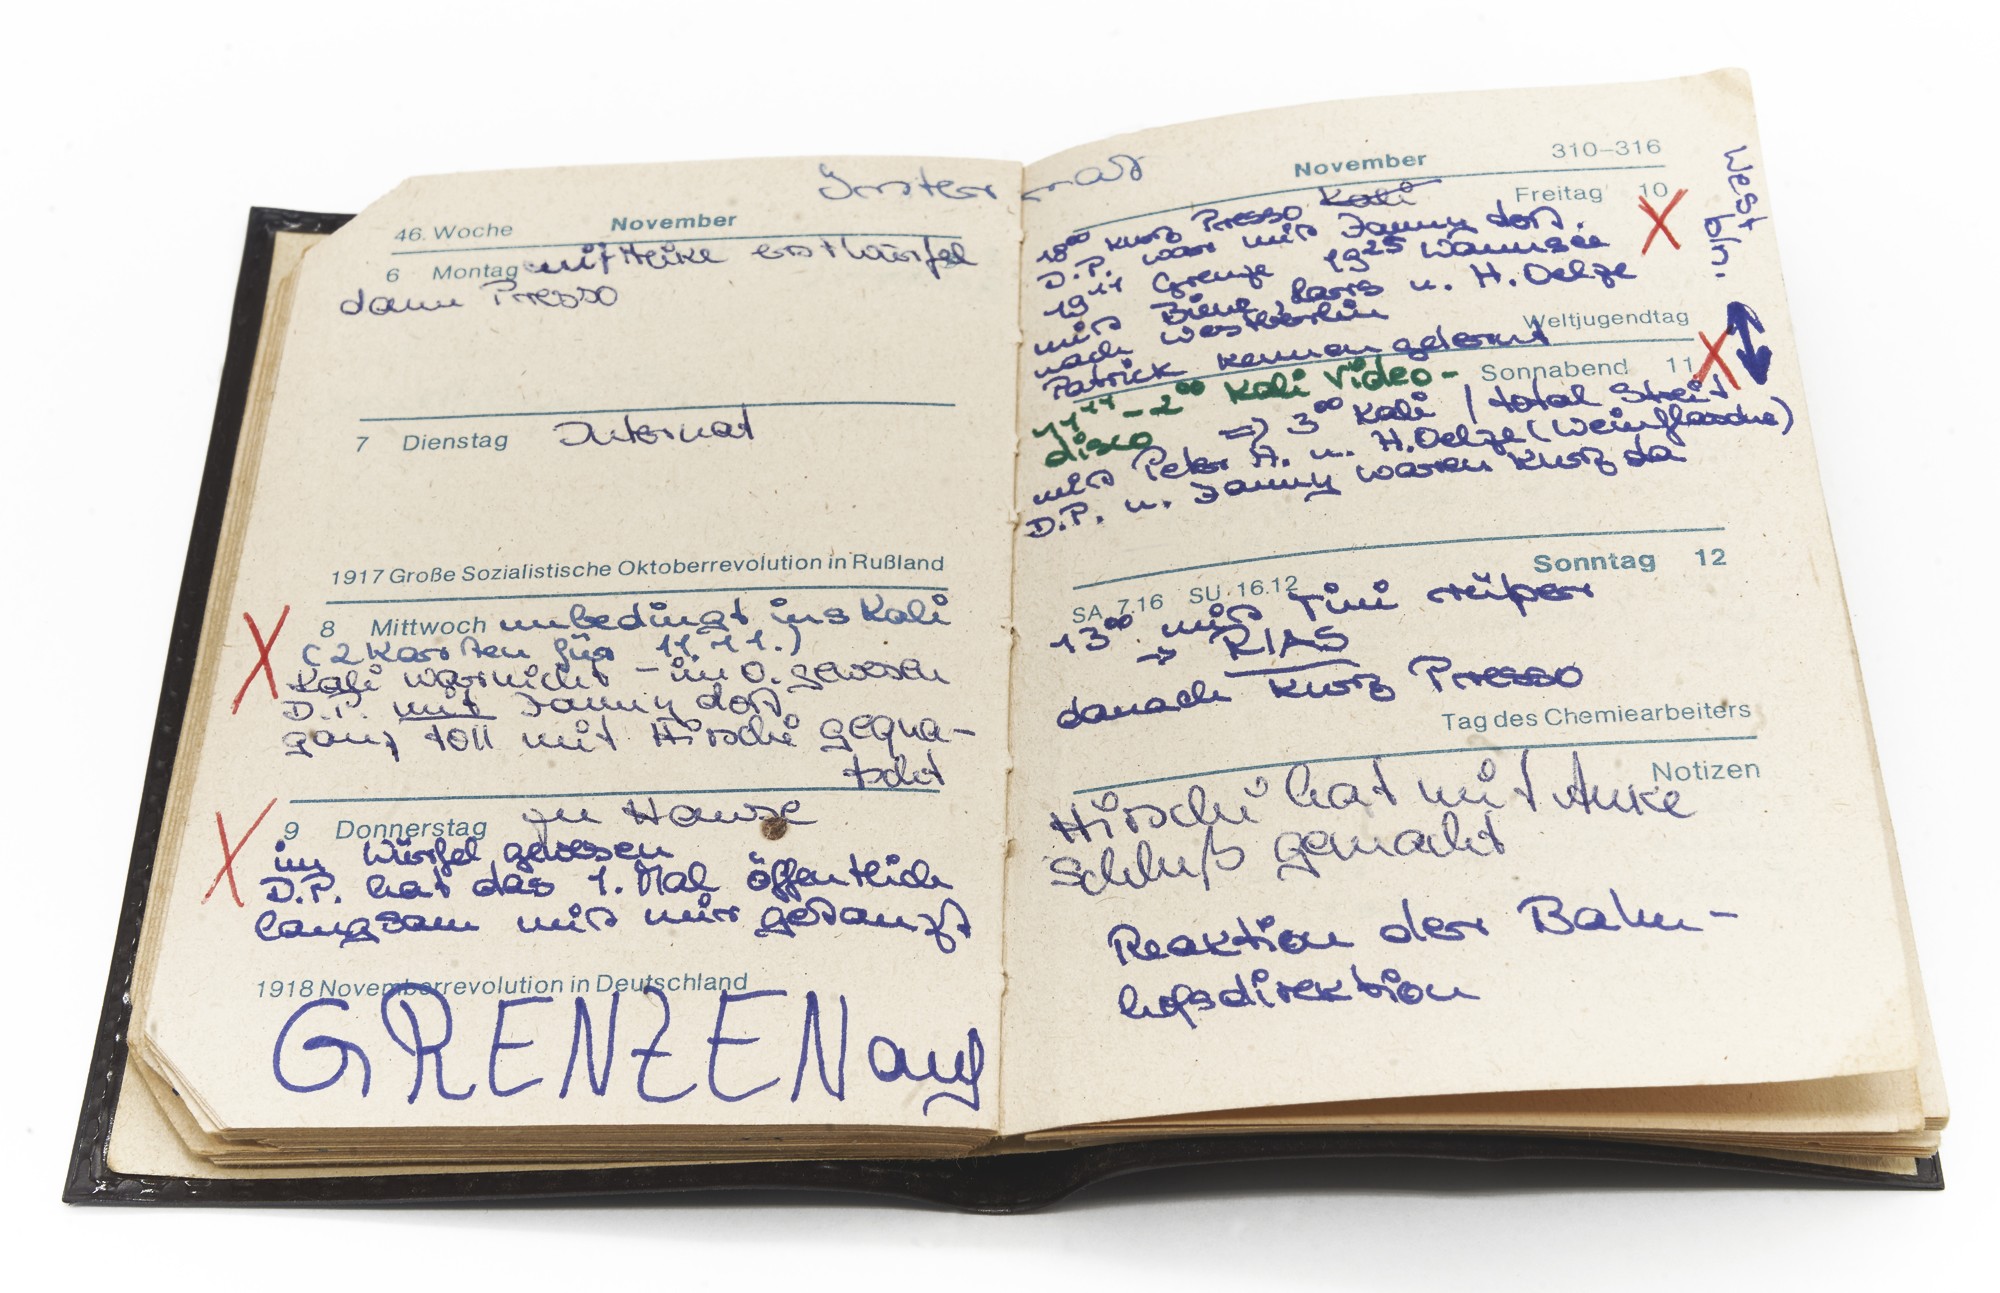 46. Woche November
6 Montag mit Heike erst Würfel
dann Presso
7 Dienstag Internat
1917 Große Sozialistische Oktoberrevolution in Rußland
8 Mittwoch unbedingt ins Kali
(2 Karten für 11.11.)
Kali war nicht – im O. gewesen
D.P. mit Janny dort
ganz toll mit Hirschi gequa-
tscht
9 Donnerstag zu Hause
im Würfel gewesen
D.P. hat das 1. Mal öffentlich
langsam mit mir getanzt
1918 Novemberrevolution in Deutschland
GRENZEN auf
November 310–316
Freitag 10
18⁰⁰ kurz Presso Kali
D.P. war mit Janny dort.
19¹¹ Grenze 19²⁵ Wannsee
mit Biene, Lars u. H. Oelze
nach Westberlin
Patrick kennen gelernt
West
bln.
Weltjugendtag
Sonnabend 11
– 2⁰⁰ Kali Video-
disco => 3⁰⁰ Kali / total Streit
mit Peter A. u. H. Oelze (Weinflasche)
D.P. u. Janny waren kurz da
Sonntag 12
SA 7.16 SU 16.12
13⁰⁰ mit Tini rüber
→ RIAS
danach kurz Presso
Tag des Chemiearbeiters
Notizen
Hirschi hat mit Anke
Schluß gemacht
Reaktion der Bahn-
hofsdirektion